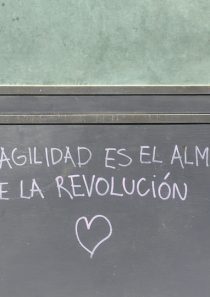 AGILIDAD ES EL ALM
E LA REVOLUCIÓN